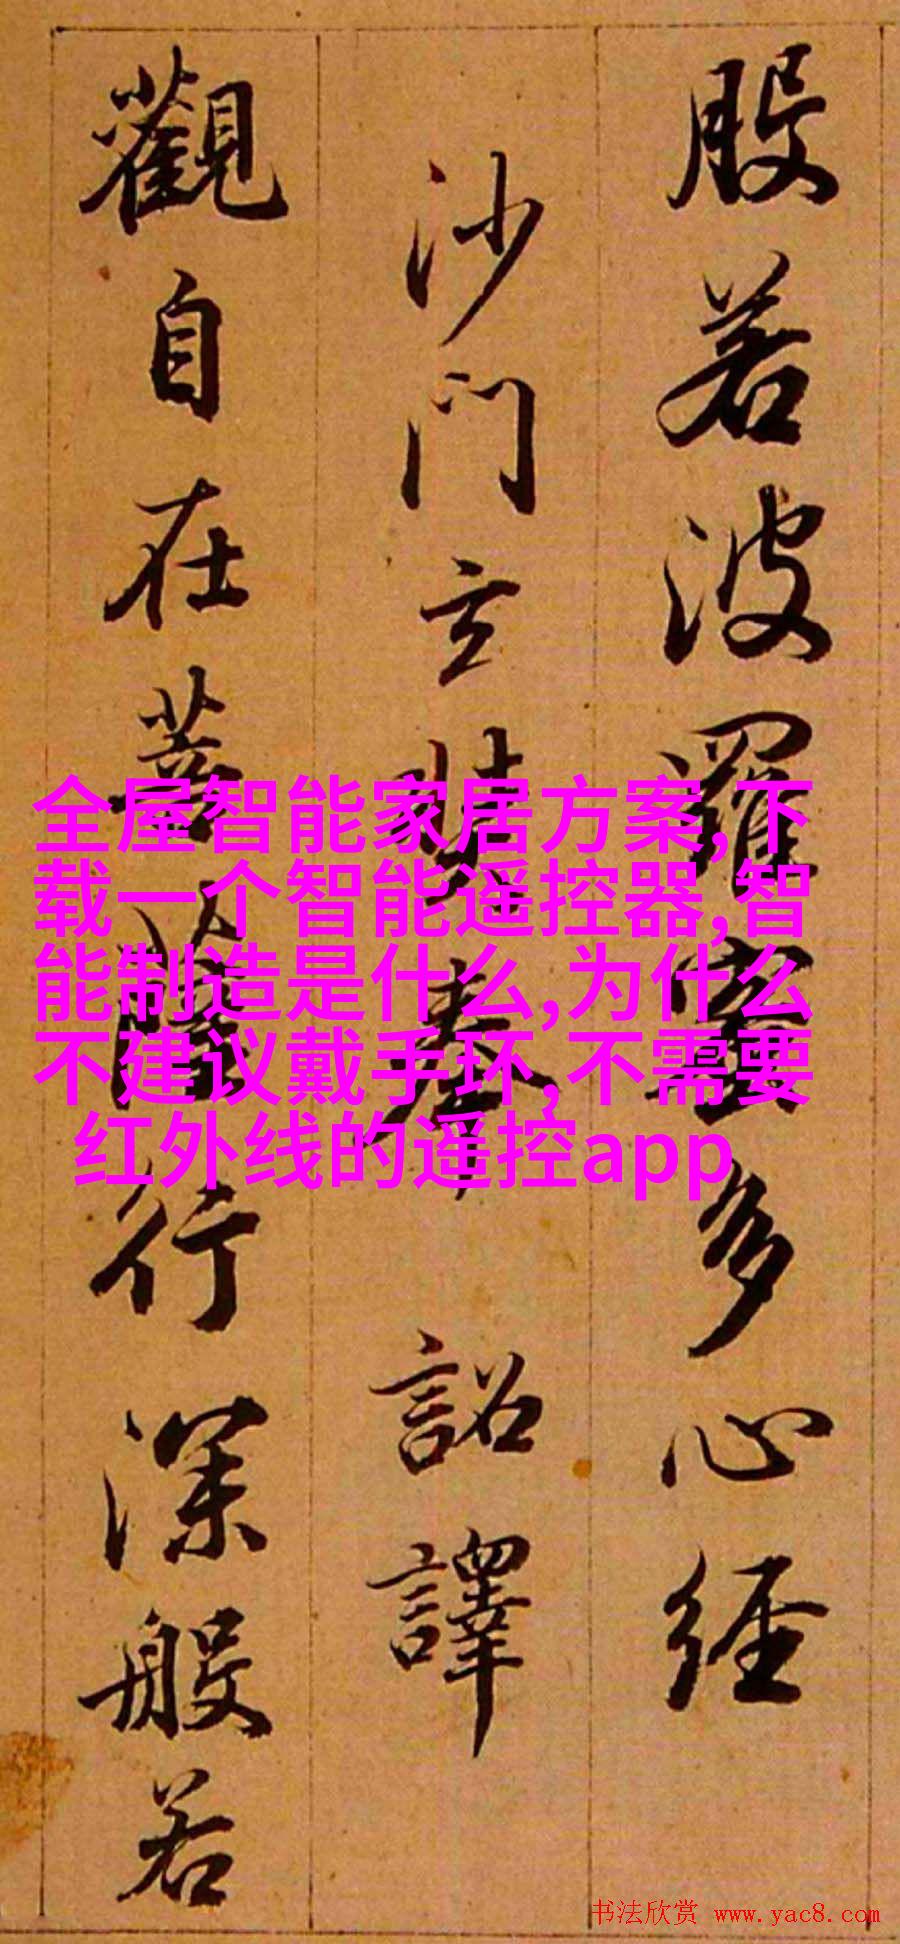 般若波羅蜜多心経
沙門玄奘奉 詔譯
觀自在菩薩行深般若
全屋智能家居方案,下
载一个智能遥控器,智
能制造是什么,为什么
不建议戴手环,不需要
红外线的遥控app
书法欣赏 www.yac8.com